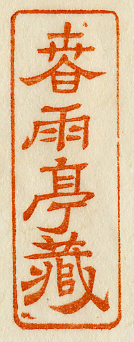 春雨亭藏